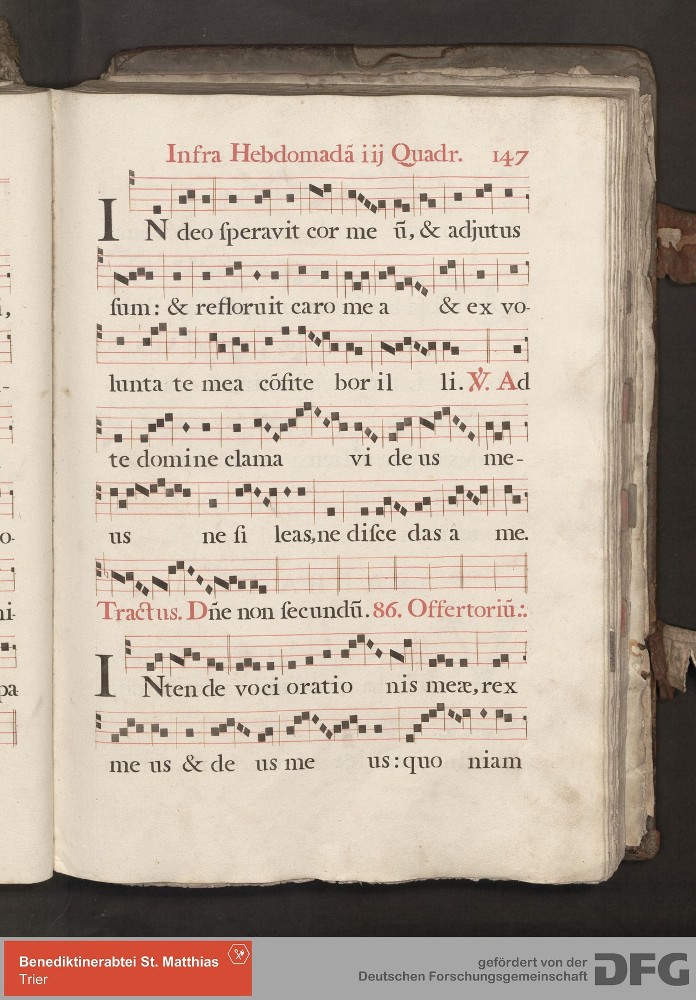 Infra Hebdomadã iij Quadr. 147
IN deo ſperavit cor me ũ, & adjutus
ſum: & refloruit caro me a & ex vo-
lunta te mea cõfite bor il li. ℣. Ad
te domine clama vi de us me-
us ne ſi leas, ne diſce das a me.
Tractus. Dñe non ſecundũ. 86. Offertoriũ:.
INten de voci oratio nis meæ, rex
me us & de us me us: quo niam
i,
-
o-
ni-
pa
Benediktinerabtei St. Matthias
Trier
gefördert von der
Deutschen Forschungsgemeinschaft
DFG